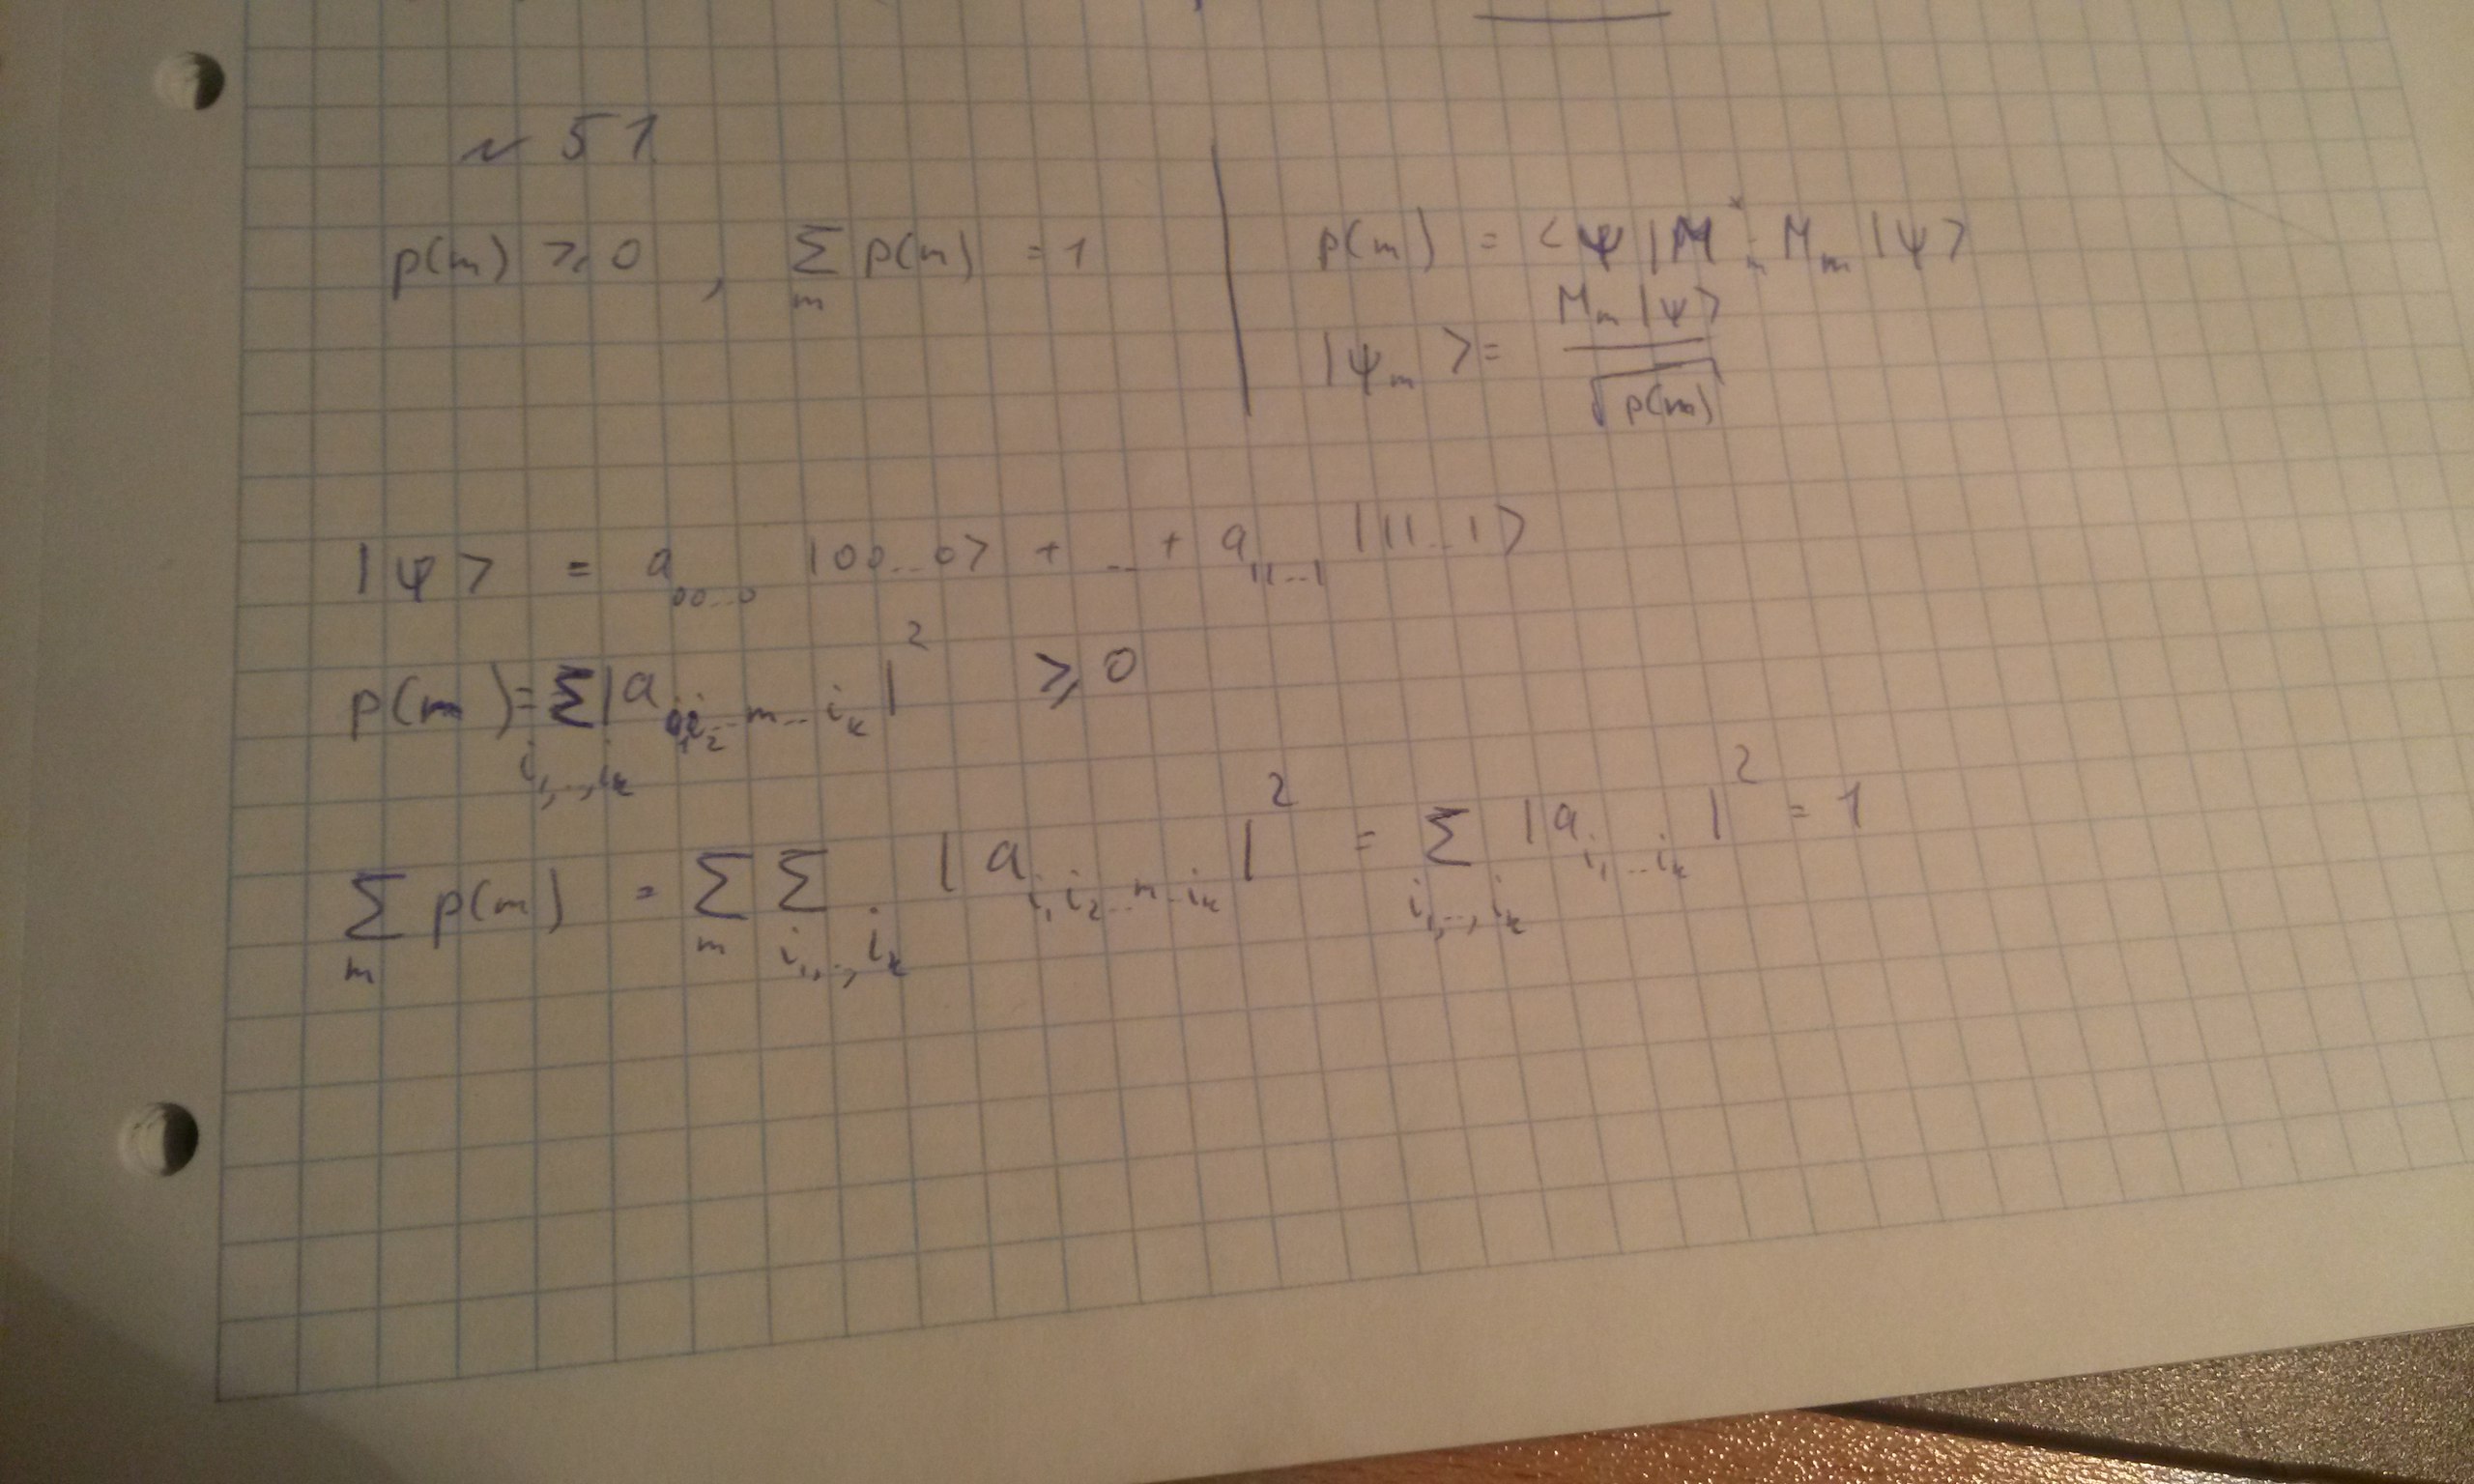 ~ 51
p(m) ≥ 0 , Σ_m p(m) = 1
p(m) = <ψ|M*_m M_m|ψ>
|ψ_m> = M_m|ψ> / √p(m)
|ψ> = a_{00...0} |00...0> + ... + a_{11...1} |11...1>
p(m) = Σ_{i_1,...,i_k} |a_{i_1 i_2...m...i_k}|^2 ≥ 0
Σ_m p(m) = Σ_m Σ_{i_1,...,i_k} |a_{i_1 i_2...m...i_k}|^2 = Σ_{i_1,...,i_k} |a_{i_1...i_k}|^2 = 1